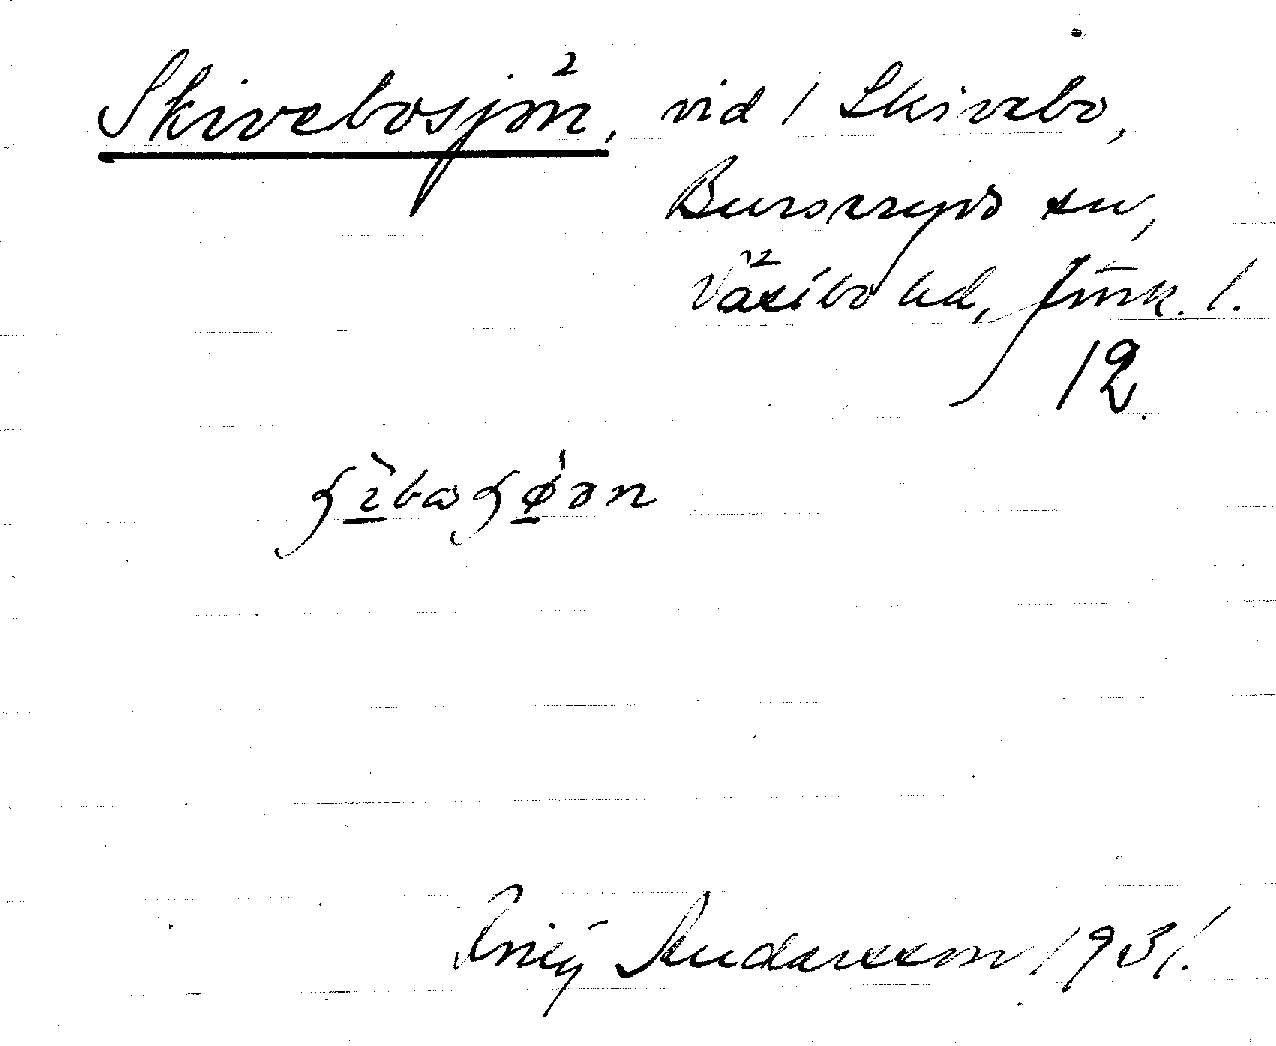 Skivebosjön, vid 1 Skivebo,
Burseryds sn,
Västbo hd, Jönk. l.
12
Andersson 1931.